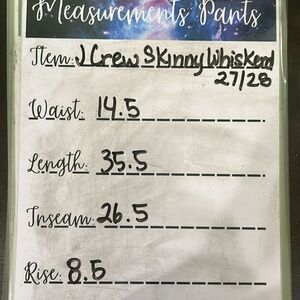 Measurements Pants
Item: J Crew Skinny Whiskend
27/28
Waist: 14.5
Length: 35.5
Inseam: 26.5
Rise: 8.5